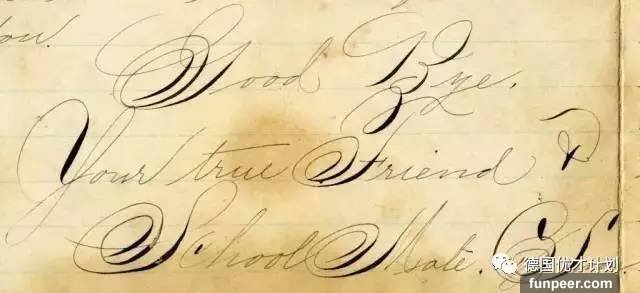 you.
Good Bye.
Your true Friend &
School Mate.
德国优才计划
funpeer.com